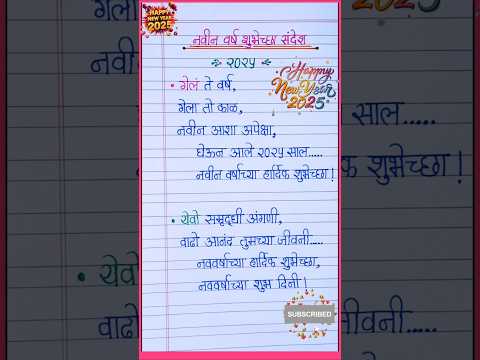 HAPPY
NEW YEAR
2025
नवीन वर्ष शुभेच्छा संदेश
२०२५
Happy
New Year
2025
• गेलं ते वर्ष,
गेला तो काळ,
नवीन आशा अपेक्षा,
घेऊन आले २०२५ साल.....
नवीन वर्षाच्या हार्दिक शुभेच्छा!
• येवो समृद्धी अंगणी,
वाढो आनंद तुमच्या जीवनी.....
नववर्षाच्या हार्दिक शुभेच्छा,
नववर्षाच्या शुभ दिनी!
SUBSCRIBED
नवी
साल.....
शुभेच्छा!
• येवो
वाढो
जीवनी.....